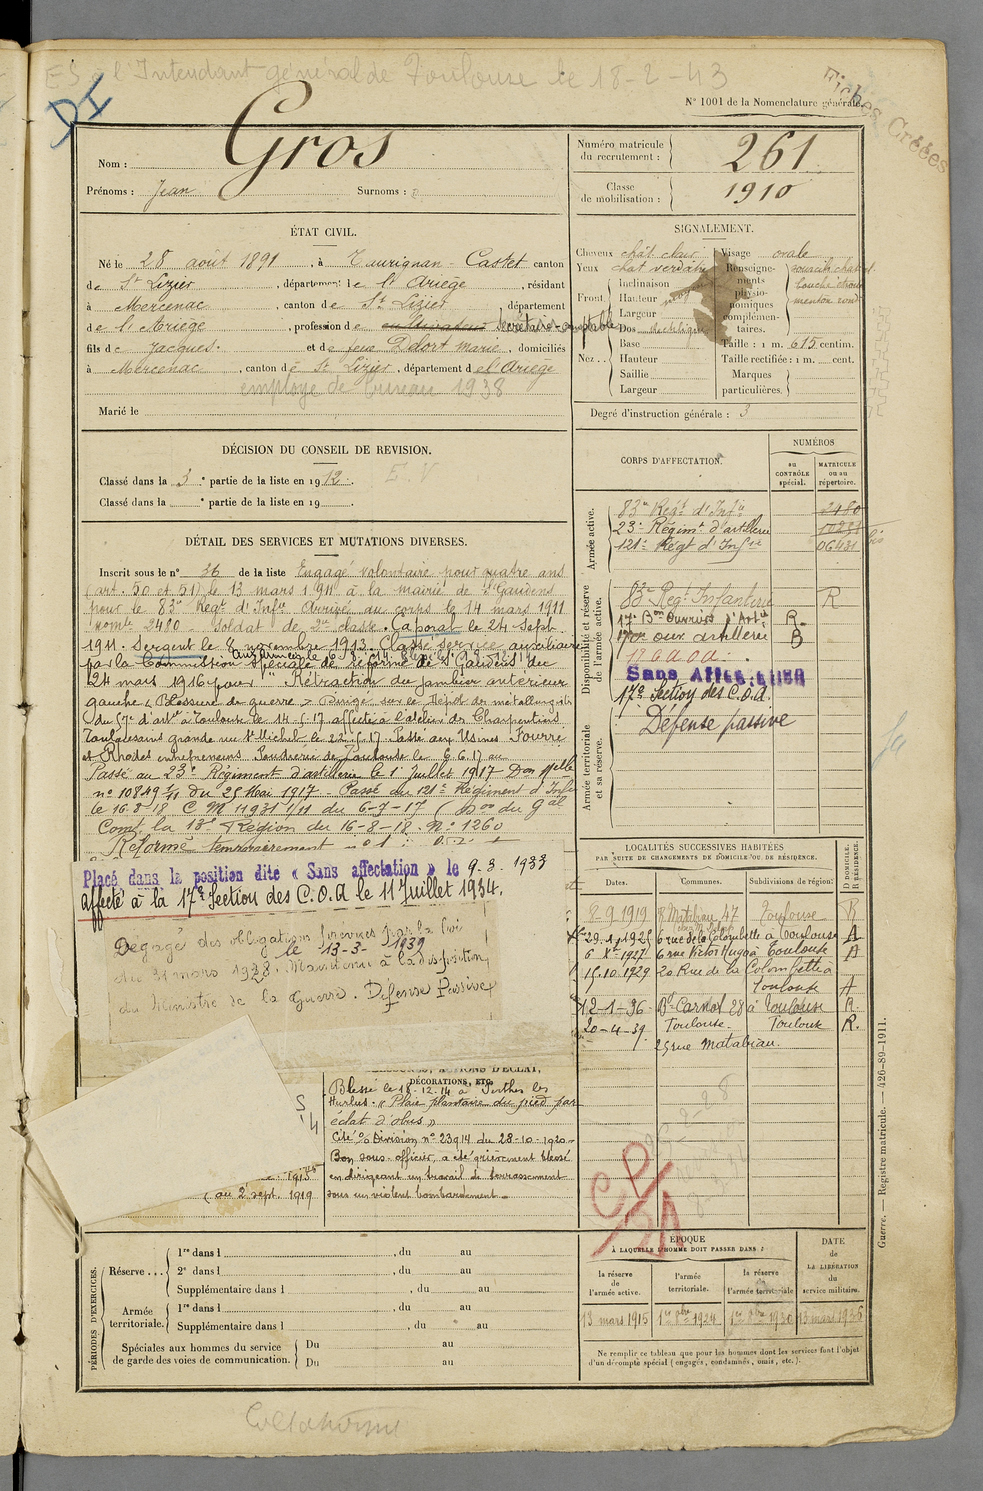 ES à l'Intendant général de Toulouse le 18-2-43
DI
Fiches Créées
N° 1001 de la Nomenclature générale.
Nom : Gros
Prénoms : Jean Surnoms :
Numéro matricule du recrutement : 261
Classe de mobilisation : 1910
ÉTAT CIVIL.
Né le 28 août 1891, à Taurignan-Castet canton
de St Lizier, département de l'Ariège, résidant
à Mercenac, canton de St Lizier, département
de l'Ariège, profession de cultivateur secrétaire-comptable
fils de Jacques et de feue Ddort Marie, domiciliés
à Mercenac, canton de St Lizier, département de l'Ariège
employé de bureau 1938
Marié le
SIGNALEMENT.
Cheveux chât clair
Yeux chat verdâtre
Front Inclinaison
Hauteur moy
Largeur
Nez Dos rectiligne
Base
Hauteur
Saillie
Largeur
Visage ovale
Renseignements physionomiques complémentaires.
menton rond
Taille : 1 m. 615 centim.
Taille rectifiée : 1 m. cent.
Marques particulières.
Degré d'instruction générale : 3
DÉCISION DU CONSEIL DE REVISION.
E.V
Classé dans la 3e partie de la liste en 1912.
Classé dans la e partie de la liste en 19
DÉTAIL DES SERVICES ET MUTATIONS DIVERSES.
Inscrit sous le n° 36 de la liste Engagé volontaire pour quatre ans
(art. 50 et 51) le 13 mars 1911 à la mairie de St Gaudens
pour le 83e Régt d'Infie Arrivé au corps le 14 mars 1911
nomt 2480. Soldat de 2e classe. Caporal le 24 Sept.
1911. Sergent le 8 novembre 1913. Classé service auxiliaire
par la Commission Spéciale de Réforme de St Gaudens du
24 mars 1916 pour " Rétraction du jambier antérieur
gauche " Blessure de guerre. Dirigé sur le Dépôt de métallurgistes
du 57e d'artie à Toulouse le 14-5-17 affecté à l'atelier de Charpentins
Toulousains grande rue St Michel le 22-5-17. Passé aux Usines Fourré
et Rhodes entrepreneurs Poudrerie de Toulouse le 6.6.17 au
Passé au 23e Régiment d'artillerie le 1er Juillet 1917 Don Mlle
n° 10849 du 25 Mai 1917 - Passé au 121e Régiment d'Infie
le 16-8-18 C M 11931 1/11 du 6-7-17 (Don du Gal
Comt la 18e Région du 16-8-18. N° 1260
Réformé temporairement n° 1
Placé dans la position dite « Sans affectation » le 9.3.1933
Affecté à la 17e Section des C.O.A le 11 Juillet 1934.
Dégagé des obligations prévues par la loi
du 31 mars 1928 le 13-3-1939. Maintenu à la disposition
du Ministre de la Guerre. Défense Passive
DÉCORATIONS, ETC.
Blessé le 18-12-14 à Perthes les
Hurlus. « Plaie plantaire du pied par
éclat d'obus »
Cité O/ Division n° 23914 du 28-10-1920
Bon sous-officier, a été grièvement blessé
en dirigeant un travail de terrassement
sous un violent bombardement
au 2 sept. 1919
CORPS D'AFFECTATION.
NUMÉROS
au CONTRÔLE spécial.
MATRICULE ou au répertoire.
Armée active.
83e Régt d'Infie 2480
23e Régimt d'artillerie
121e Régt d'Infie 06431 bis
Disponibilité et réserve de l'armée active.
83e Régt Infanterie R
17e Bon Ouvriers d'Artie R.
17e on oux artillerie B
17 C.O.A
Sans Affectation
17e Section des C.O.A
Défense passive
Armée territoriale et sa réserve.
LOCALITÉS SUCCESSIVES HABITÉES
PAR SUITE DE CHANGEMENTS DE DOMICILE OU DE RÉSIDENCE.
Dates. Communes. Subdivisions de région. D DOMICILE. R RÉSIDENCE.
8-9-1919 R Matabiau 47 Toulouse R
29-1-1925 6 rue de la Colombette à Toulouse A
6 Xe 1927 6 rue Victor Hugo à Toulouse A
15-10-1929 20 Rue de la Colombette à
Toulouse A
12-1-36 Bd Carnot 28 à Toulouse R.
20-4-39 Toulouse. Toulouse R.
25 rue Matabiau.
CP
PÉRIODES D'EXERCICES.
Réserve ... 1re dans l , du au
2e dans l , du au
Supplémentaire dans l , du au
Armée territoriale. 1re dans l , du au
Supplémentaire dans l , du au
Spéciales aux hommes du service de garde des voies de communication. Du au
Du au
ÉPOQUE
À LAQUELLE L'HOMME DOIT PASSER DANS :
la réserve de l'armée active.
l'armée territoriale.
la réserve de l'armée territoriale
DATE de LA LIBÉRATION du service militaire.
13 mars 1915 1er 8bre 1924 1er 8bre 1930 13 mars 1936
Ne remplir ce tableau que pour les hommes dont les services font l'objet
d'un décompte spécial (engagés, condamnés, omis, etc.).
Guerre. — Registre matricule. — 426-89-1911.